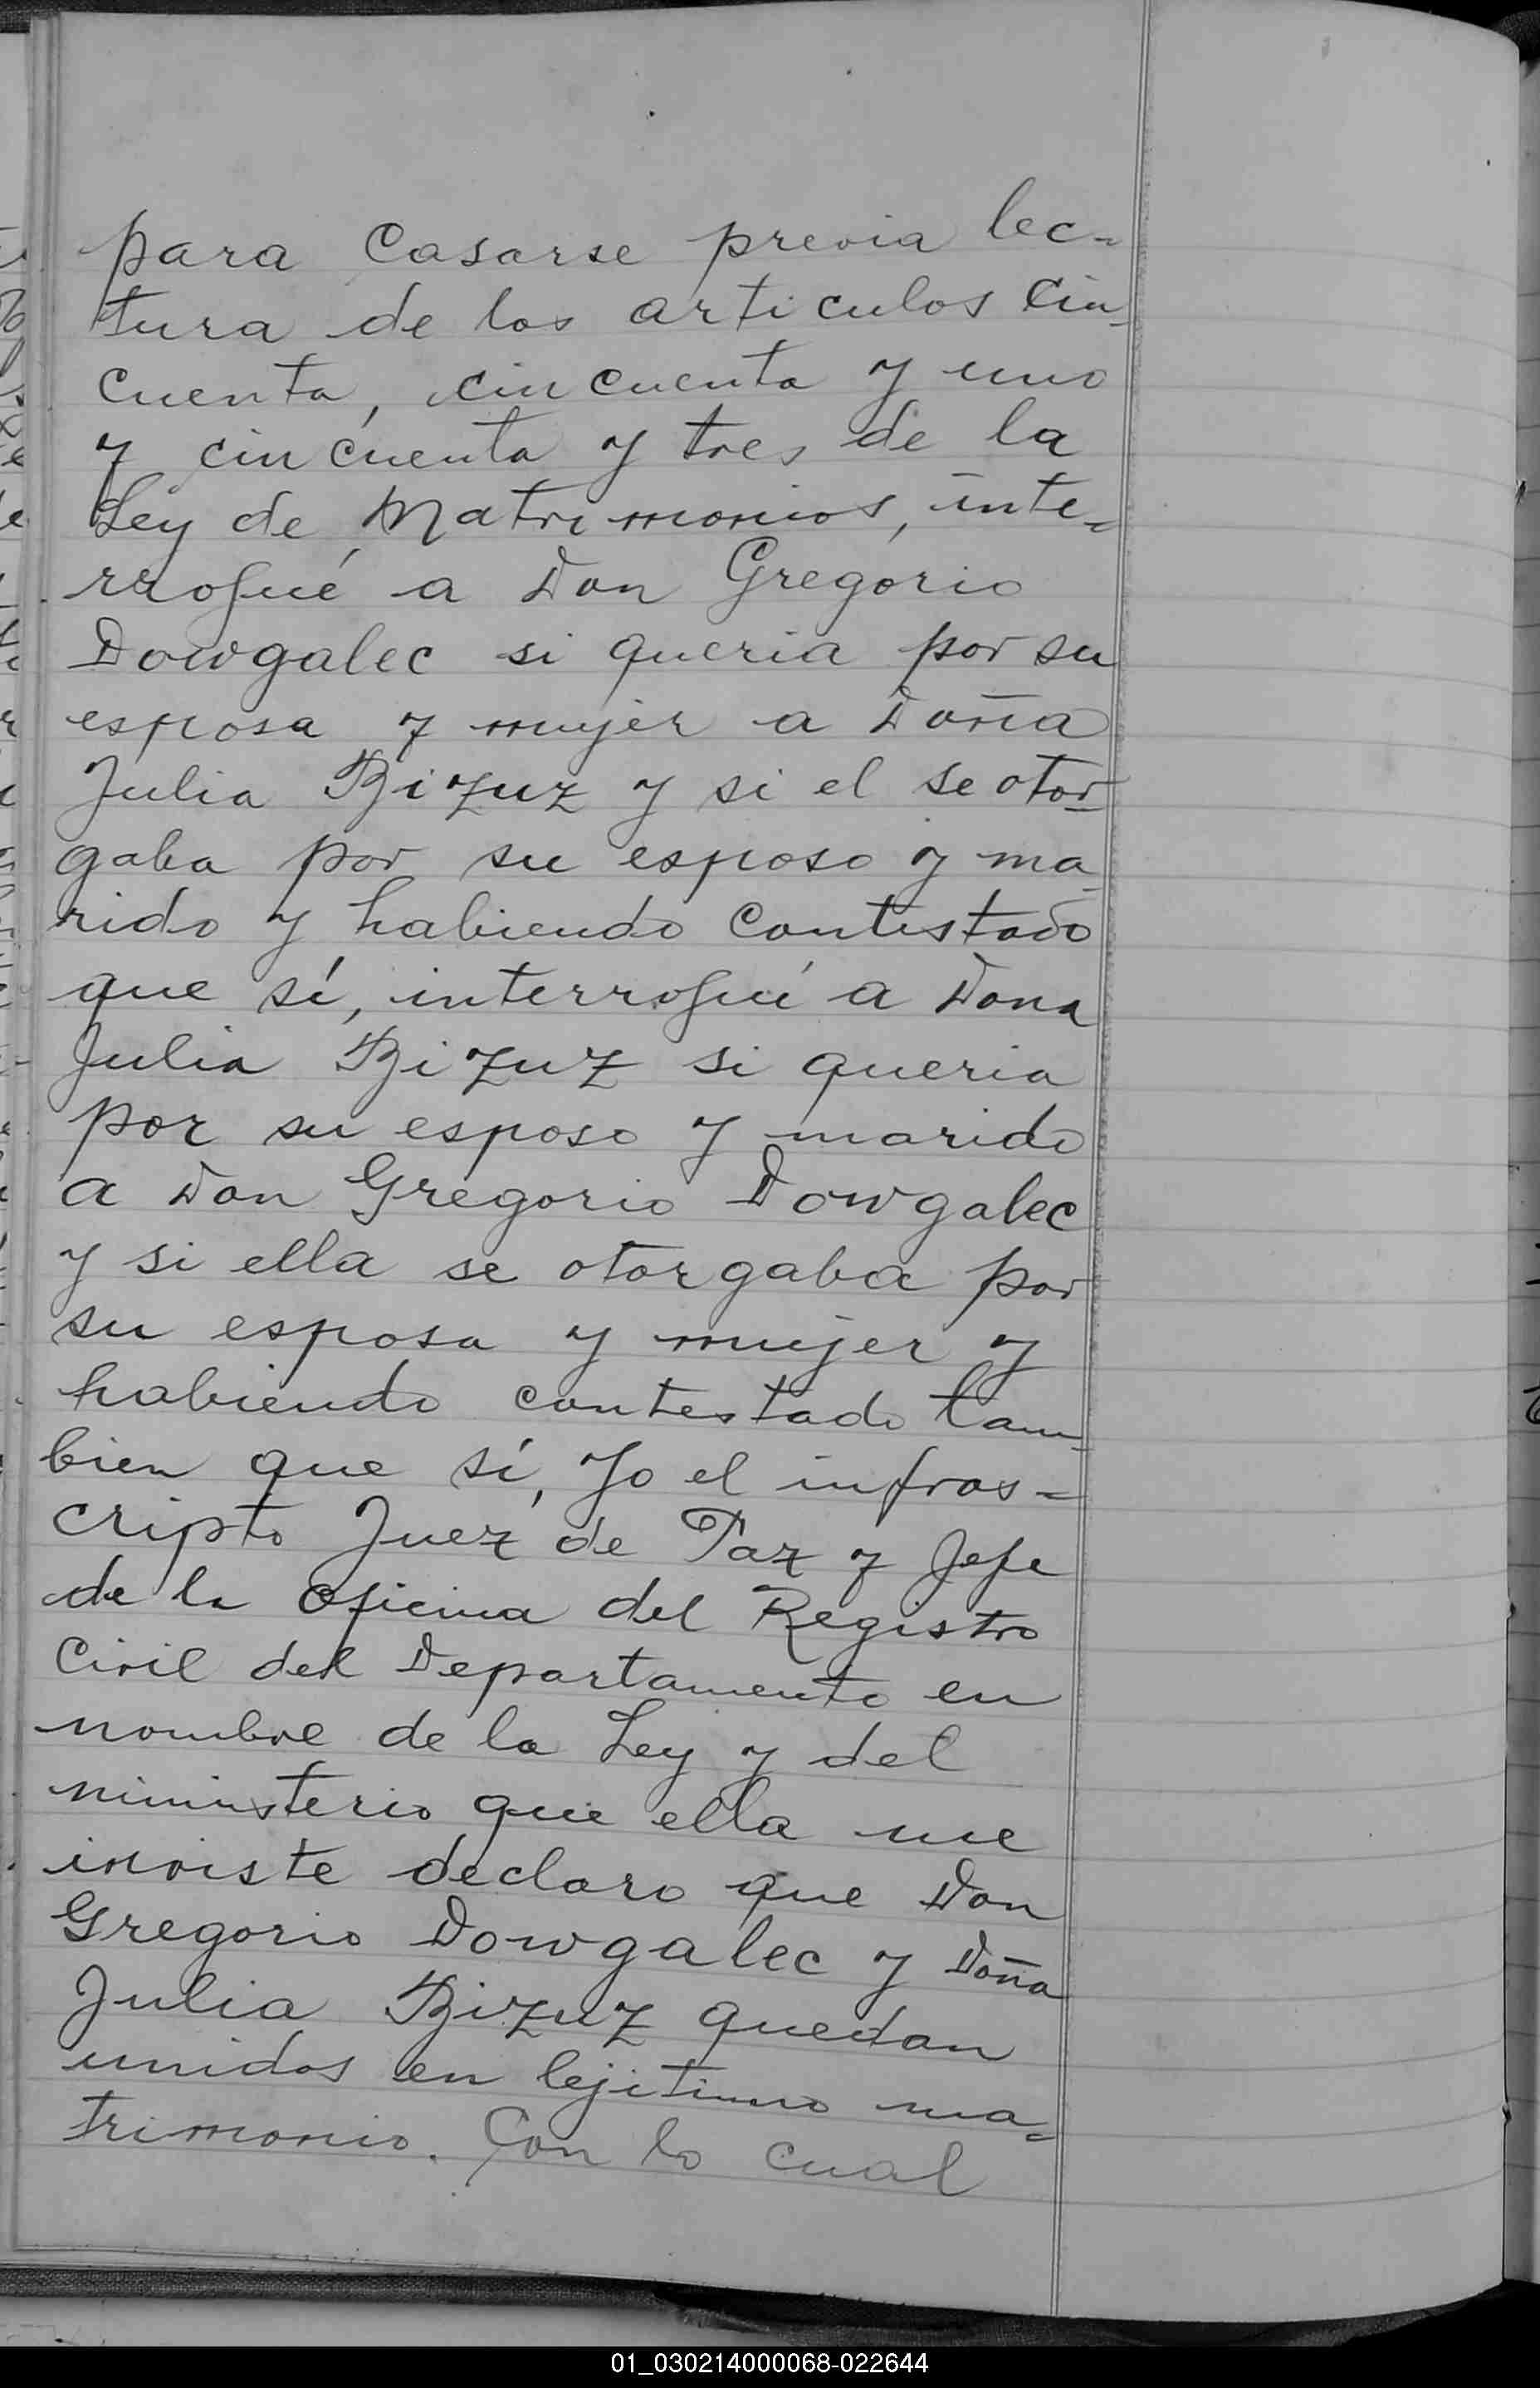 para Casarse previa lec=
tura de los articulos Cin_
cuenta, cincuenta y uno
y cincuenta y tres de la
Ley de Matrimonios, inte=
rrogué a Don Gregorio
Dowgalec si queria por su
esposa y mujer a Doña
Julia Bizuz y si el se otor_
gaba por su esposo y ma_
rido y habiendo Contestado
que sí, interrogué a Dona
Julia Bizuz si queria
por su esposo y marido
a Don Gregorio Dowgalec
y si ella se otorgaba por
su esposa y mujer y
habiendo contestado tam_
bien que sí, Yo el infras=
cripto Juez de Paz y Jefe
de la Oficina del Registro
Civil del Departamento en
nombre de la Ley y del
ministerio que ella me
inviste declaro que Don
Gregorio Dowgalec y Doña
Julia Bizuz quedan
unidos en lejitimo ma=
trimonio. Con lo cual
01_030214000068-022644